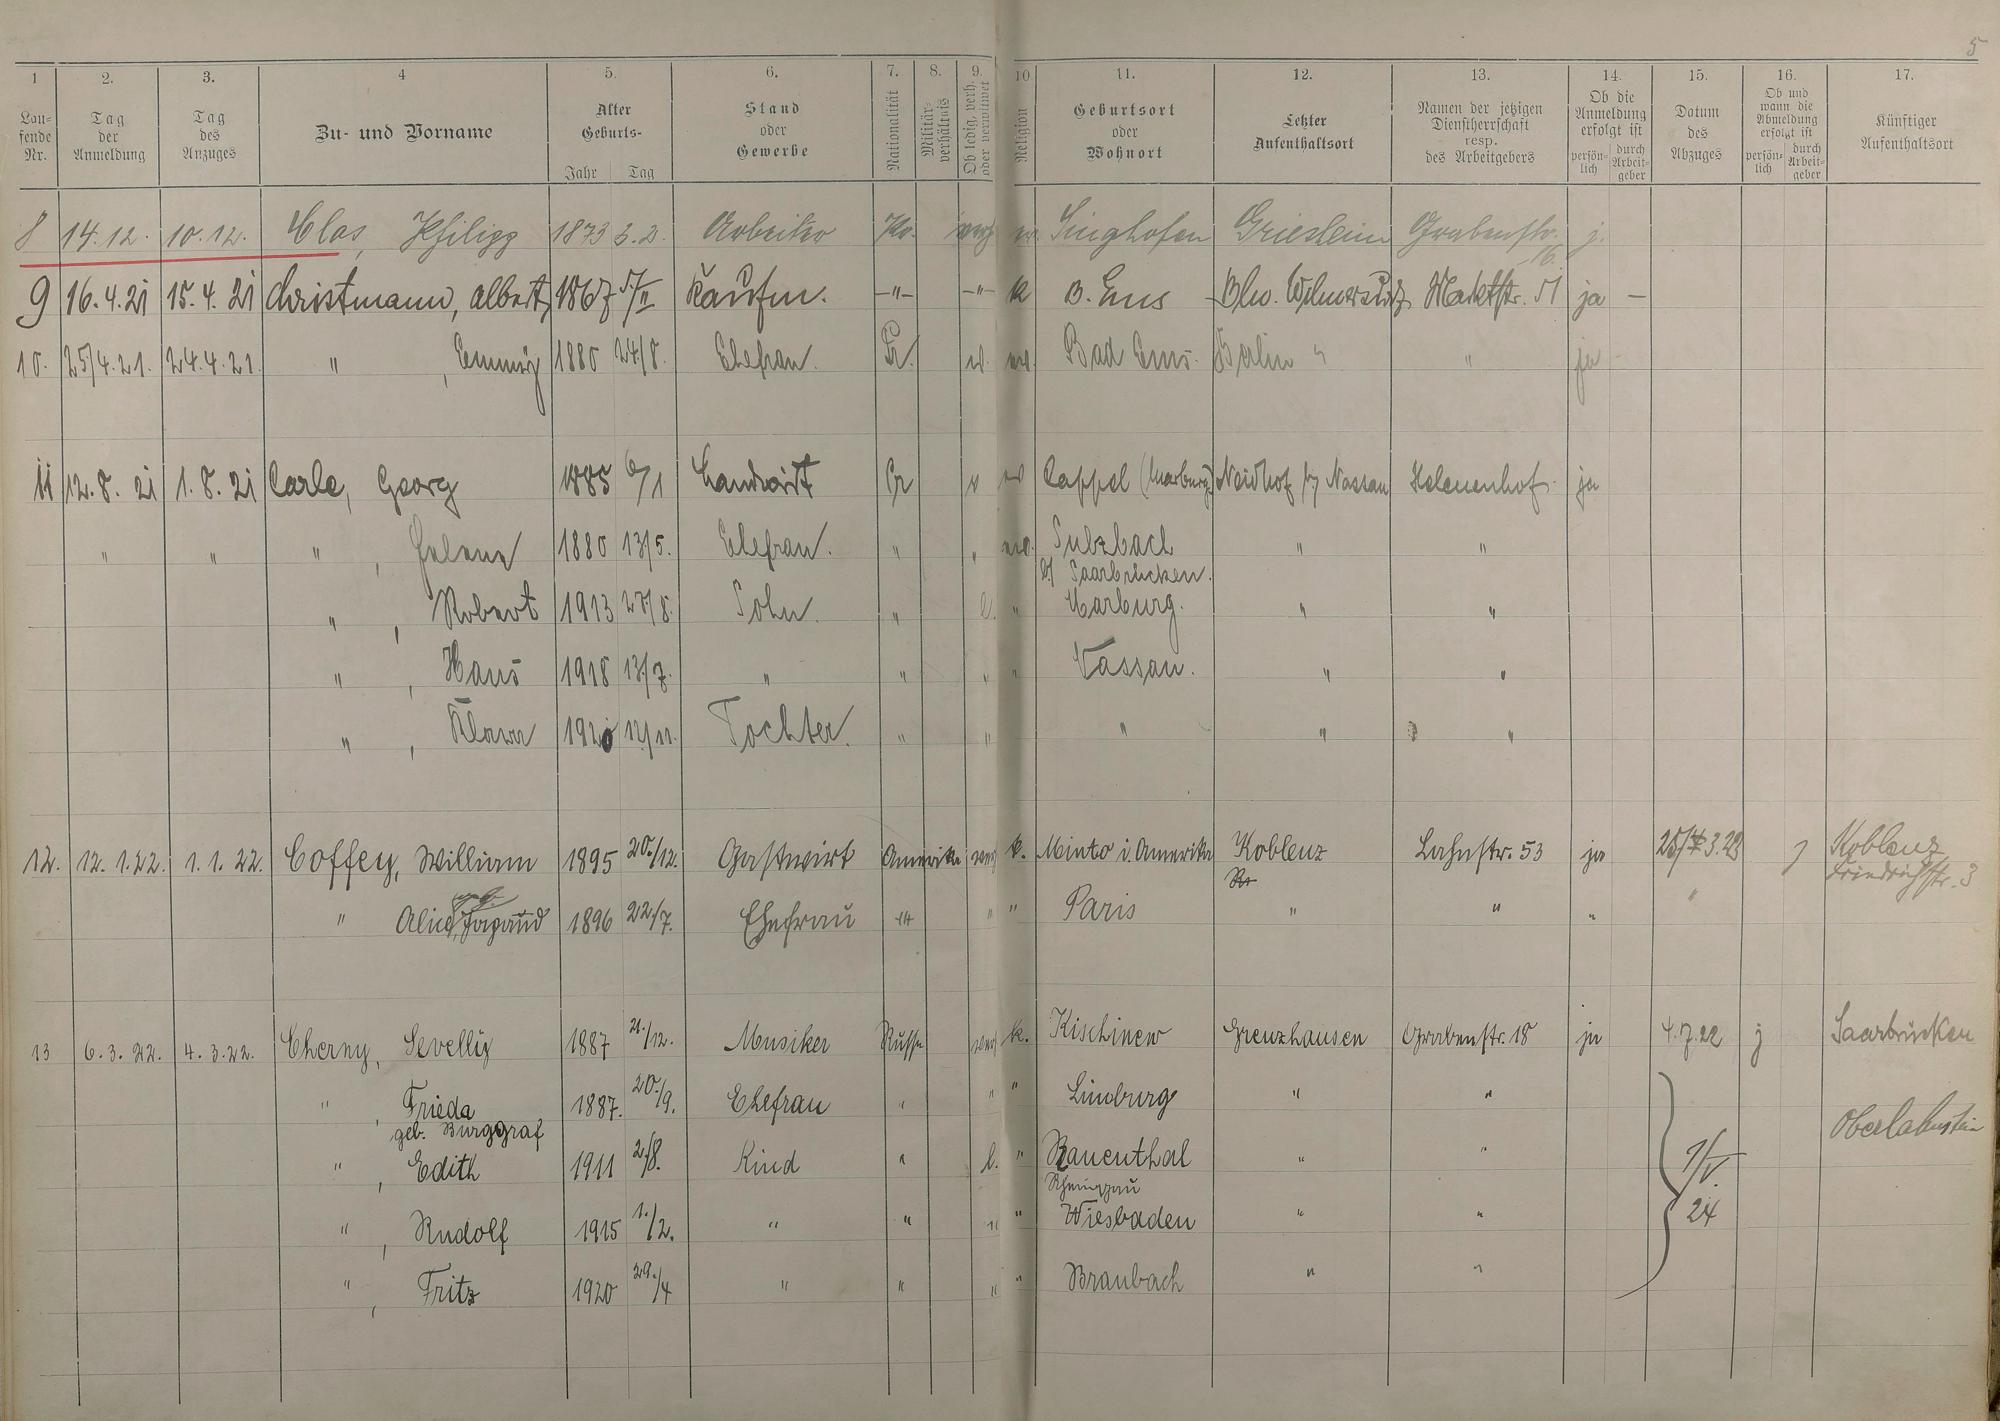 5
1 2. 3. 4 5. 6. 7. 8. 9. 10. 11. 12. 13. 14. 15. 16. 17.
Lau-
fende
Nr.
Tag
der
Anmeldung
Tag
des
Anzuges
Zu- und Vorname
Alter
Geburts-
Jahr Tag
Stand
oder
Gewerbe
Nationalität
Militär-
verhältnis
Ob ledig, verh.
oder verwitwet
Religion
Geburtsort
oder
Wohnort
Letzter
Aufenthaltsort
Namen der jetzigen
Dienstherrschaft
resp.
des Arbeitgebers
Ob die
Anmeldung
erfolgt ist
persön-
lich
durch
Arbeit-
geber
Datum
des
Abzuges
Ob und
wann die
Abmeldung
erfolgt ist
persön-
lich
durch
Arbeit-
geber
Künftiger
Aufenthaltsort
8 14.12. 10.12. Clos, Philipp 1873 3.2. Arbeiter Pr. Singhofen Grabenstr. j.
16.
9 16.4.21 15.4.21 Christmann, Albert 1867 5/II Kaufm. —"— —"— k B. Ems Bln. Wilmersdf Marktstr. 51 ja —
10. 25/4.21. 24.4.21. " , Emmy 1880 24/8. Ehefrau. Pr. Bad Ems. Berlin " " ja
11 12.8.21 1.8.21 Carle, Georg 1885 6/1 Landwirt Pr Cappel (Marburg) Neidhof b/ Nassau Helenenhof. ja
" " " , Helene 1880 13/5. Ehefrau. " " Sulzbach " "
b/ Saarbrücken.
" , Robert 1913 27/8. Sohn. " l. " Marburg. " "
" , Hans 1918 13/7. " " " " Nassau. " "
" , Klara 1920 12/11. Tochter. " " " " "
12. 12.1.22. 1.1.22. Coffey, William 1895 20./12. Gastwirt Amerika k. Minto i. Amerika Koblenz Lahnstr. 53 ja j Koblenz
Friedrichstr. 3
geb.
" Alice 1896 22/7. Ehefrau " " " Paris " " " "
13 6.3.22. 4.3.22. Cherny, Sevelliy 1887 21./12. Musiker Russe k. Kischinew Grenzhausen Grabenstr. 18 ja 4.7.22 j Saarbrücken
" , Frieda 1887. 20./9. Ehefrau " " " Limburg " " Oberlahnstein
geb. Burggraf
" , Edith 1911 2./8. Kind " l. " Rauenthal " " 1/V.
Rheingau
" , Rudolf 1915 1./2. " " " " Wiesbaden " " 24
" , Fritz 1920 29./4 " " " " Braubach " "